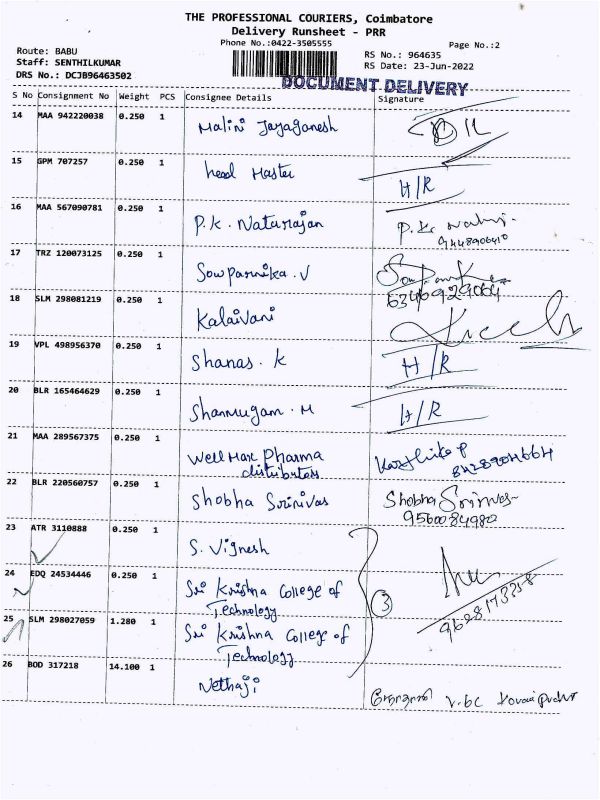 THE PROFESSIONAL COURIERS, Coimbatore
Delivery Runsheet - PRR
Phone No.:0422-3505555
Page No.:2
Route: BABU
RS No.: 964635
Staff: SENTHILKUMAR
RS Date: 23-Jun-2022
DRS No.: DCJB96463502
DOCUMENT DELIVERY
S No Consignment No Weight PCS Consignee Details Signature
14 MAA 942220038 0.250 1 Malini Jayaganesh
15 GPM 707257 0.250 1 head Master H/R
16 MAA 567090781 0.250 1 P.K. Natarajan P.K.
9448906410
17 TRZ 120073125 0.250 1 Sowparnika.V
6346929064
18 SLM 298081219 0.250 1 Kalaivani
19 VPL 498956370 0.250 1 Shanas.K H/R
20 BLR 165464629 0.250 1 Shanmugam.M H/R
21 MAA 289567375 0.250 1 Wellmax Pharma
distributors
8428904664
22 BLR 220560757 0.250 1 Shobha Srinivas Shobha Srinivas
9560084980
23 ATR 3110888 0.250 1 S. Vignesh
24 EDQ 24534446 0.250 1 Sri Krishna College of
Technology
3
25 SLM 298027059 1.280 1 Sri Krishna College of
Technology
26 BOD 317218 14.100 1 Nethaji